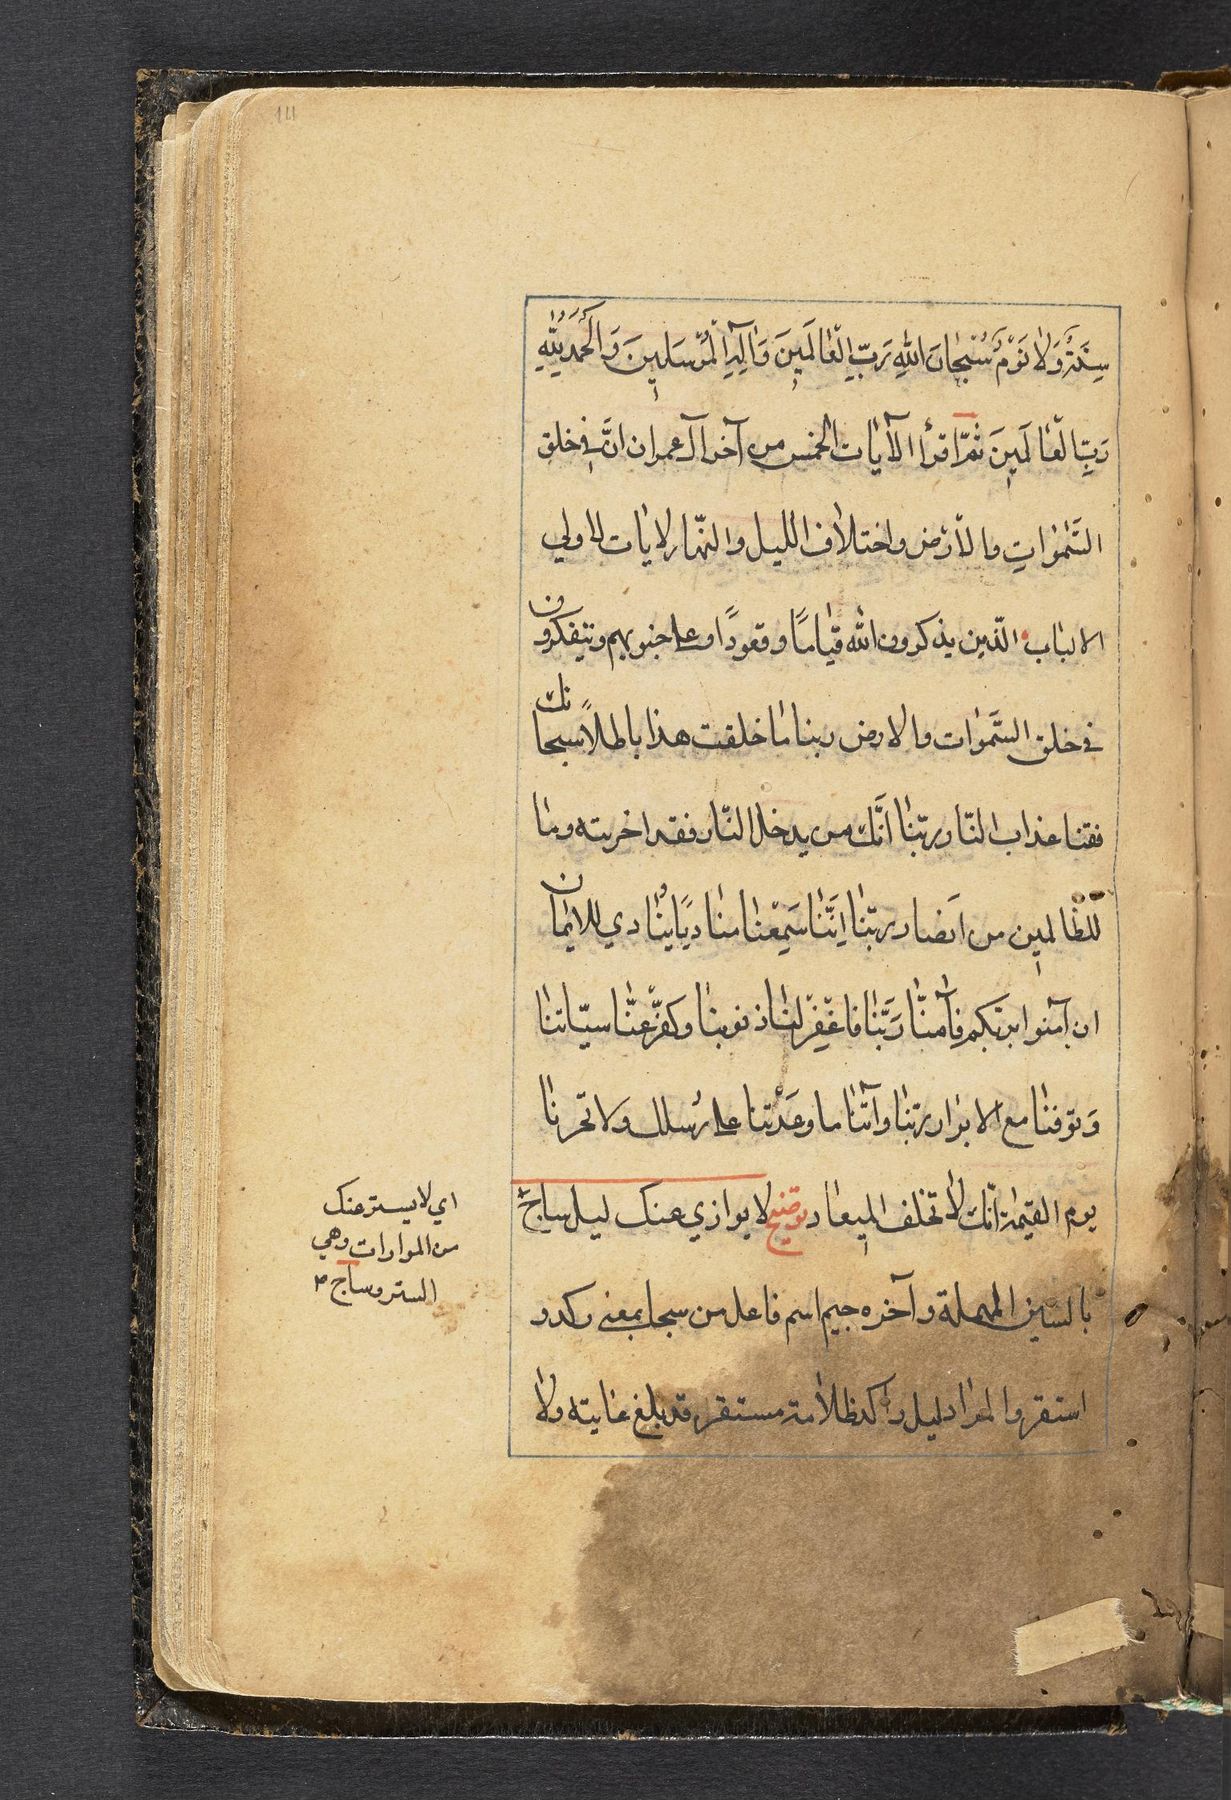 سِنَةٌ وَلَا نَوْمٌ سُبْحَانَ اللهِ رَبِّ الْعَالَمِينَ وَاٰلِهِ الْمُرْسَلِينَ وَالْحَمْدُ لِلّٰهِ
رَبِّ الْعَالَمِينَ ثُمَّ اقرأ الآيات الخمس من آخر آل عمران انَّ في خلق
السَّمٰوَاتِ والأَرْض واختلاف الليل والنّهار لايات لاولي
الالباب الّذين يذكرون الله قيامًا وقعودًا وعلى جنوبهم ويتفكرون
في خلق السَّمٰوات والارض ربنا ما خلقت هذا باطلاً سبحانك
فقنا عذاب النّار ربّنا انَّك من يدخل النّار فقد اخزيته وما
للظّالمين من اَنصار ربّنا اِنَّنا سَمِعْنا مناديًا يُنادي للايمان
ان آمنوا بربّكم فآمنّا رَبَّنا فاغْفِرْ لنا ذنوبنا وكفّرْ عنّا سيّاتنا
وَتوفنا مع الابرار ربّنا وآتنا ما وعَدْتنا على رُسلك ولا تخزنا
يوم القيٰمة انّك لا تخلف الميعاد توضيح لا يوازي عنك ليل ساج
بالسّين المهملة وآخره جيم اسم فاعل من سجا بمعنى ركد و
استقر والمراد ليل راكد ظلامة مستقر قد بلغ غايته ولا
اي لا يستر عنك
من الموارات وهي
الستر وساج ٣